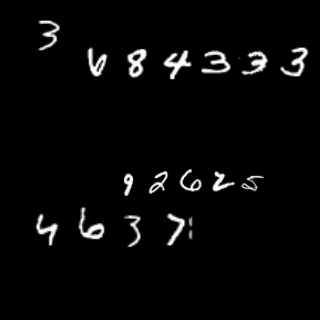 3
684333
92625
4637